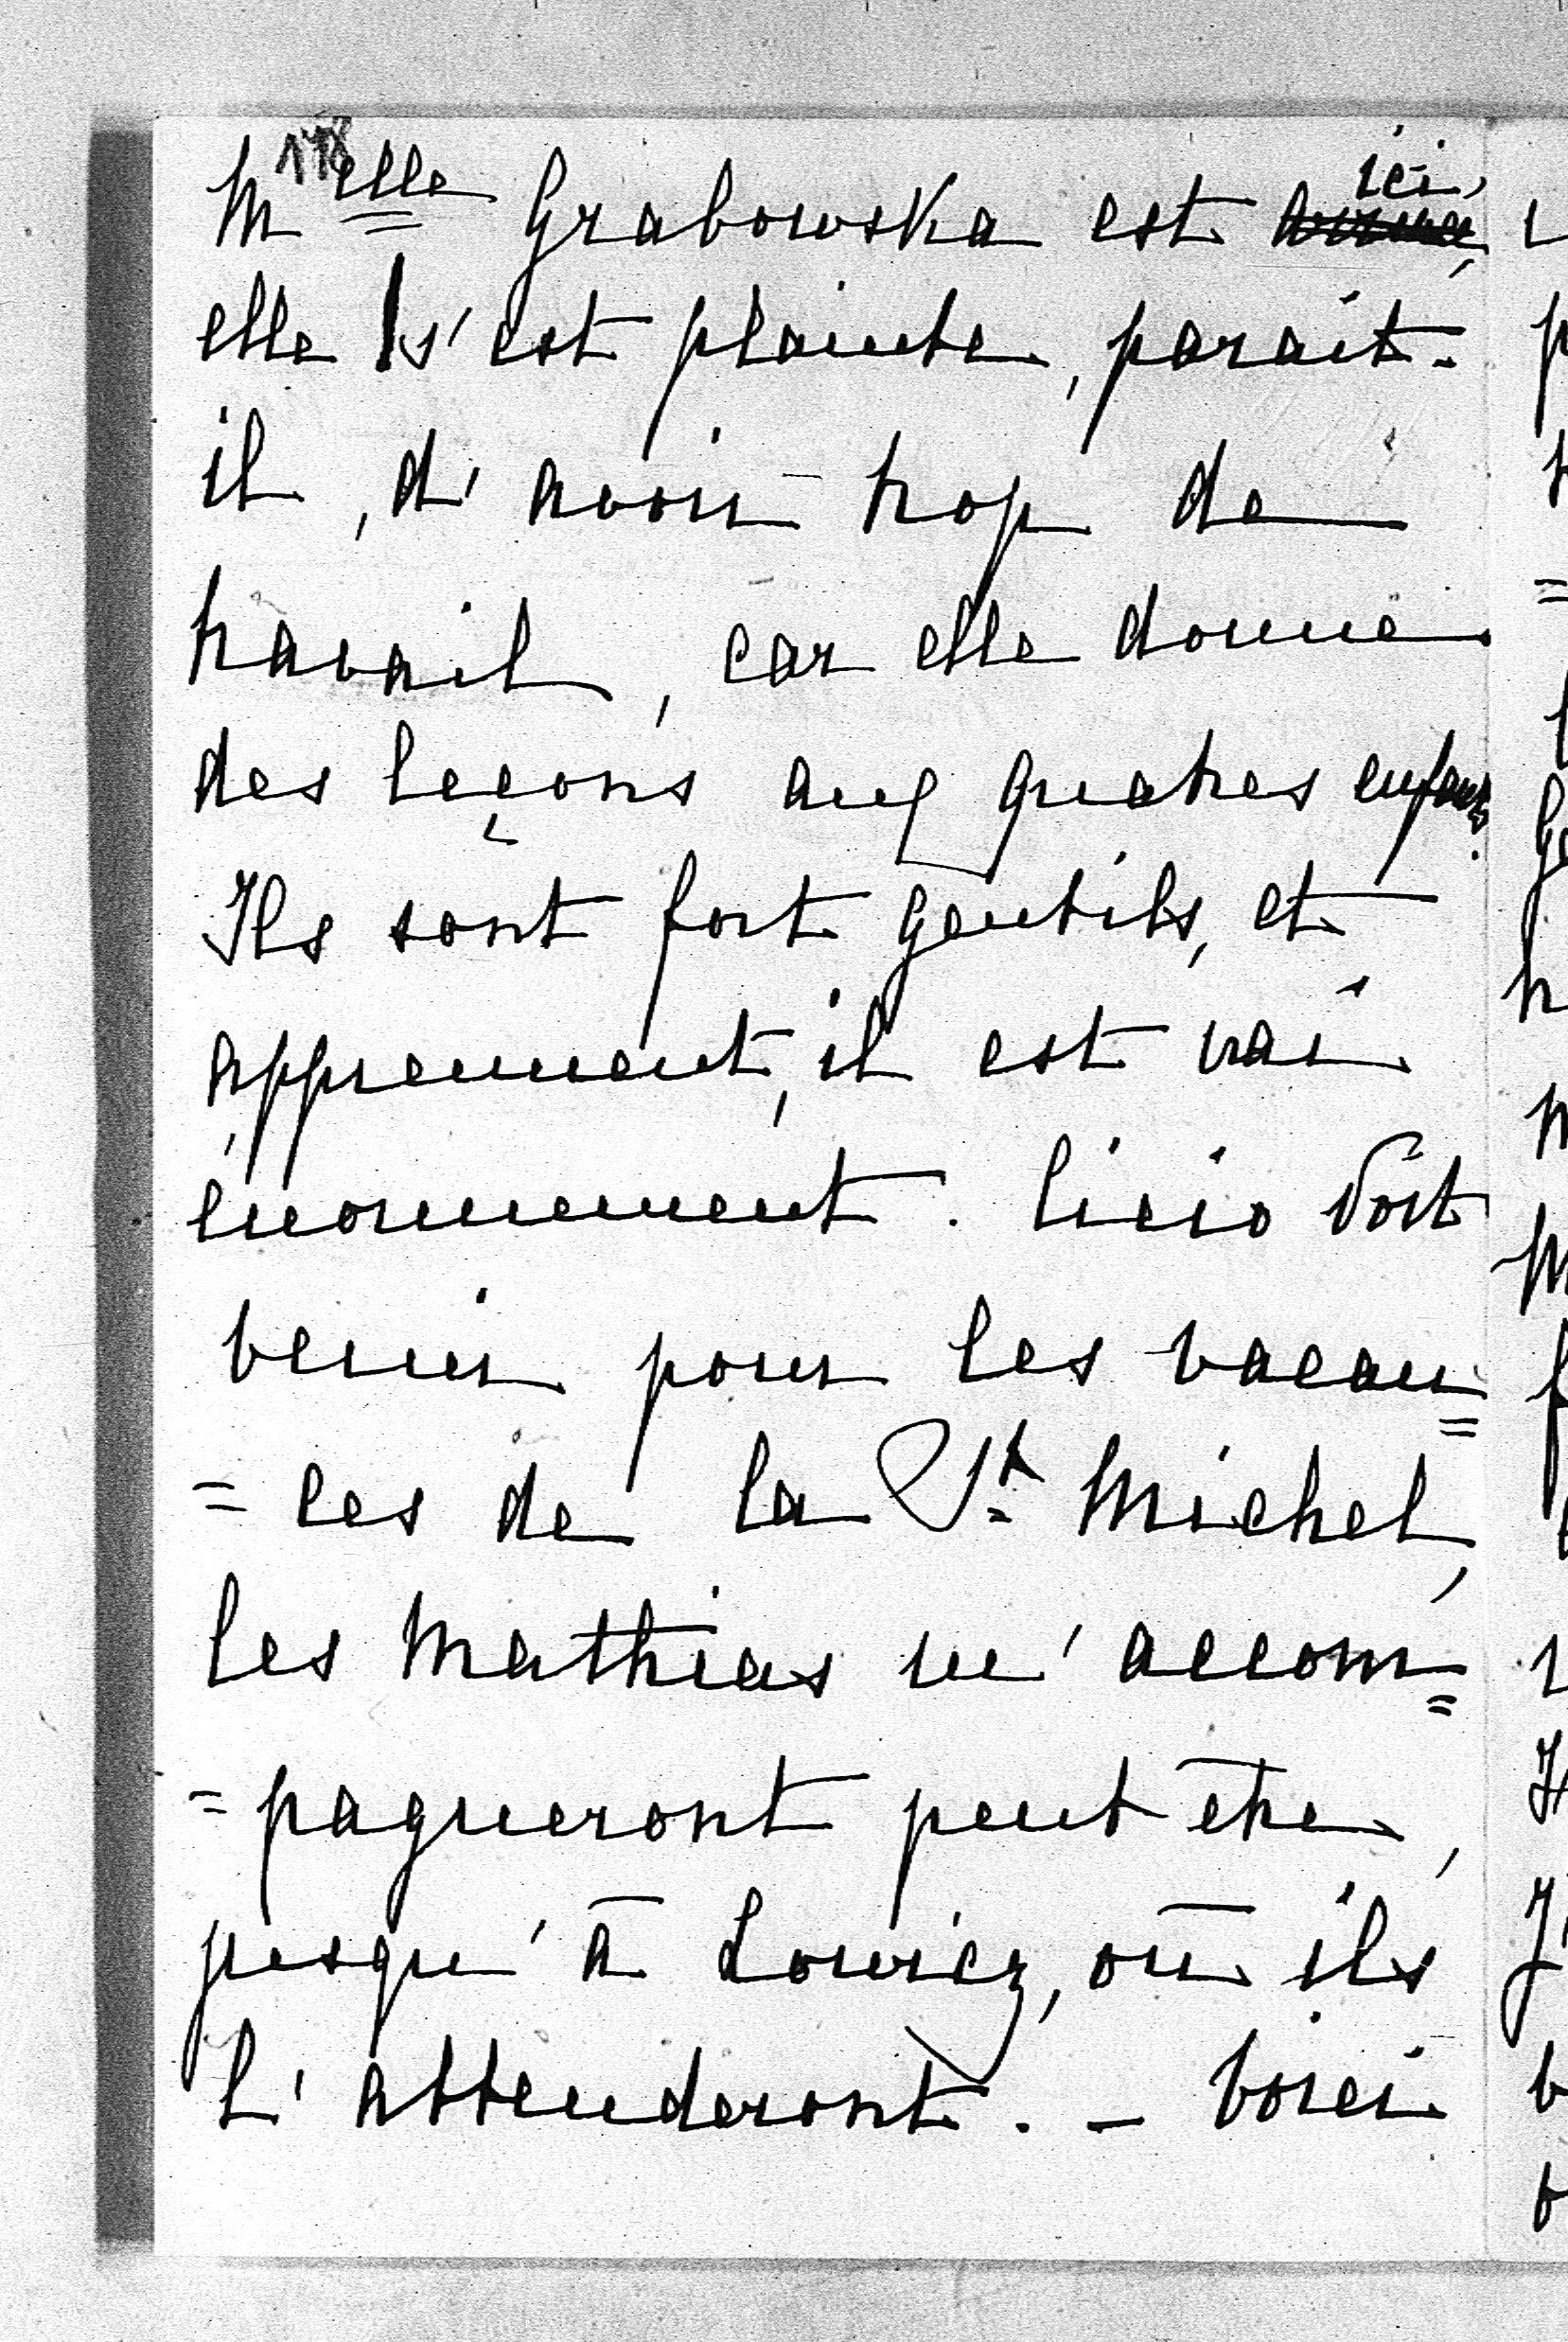 178
Melle Grabowska est ici,
elle s'est plainte, parait-
il, d'avoir trop de
travail, car elle donne
des leçons aux quatres enfants.
Ils sont fort gentils, et
apprennent, il est vrai
énormément. Licio doit
venir pour les vacan=
=ces de la St Michel,
les Mathias m'accom=
=pagneront peut être,
jusqu'à Lowicz, où ils
l'attenderont. – Voici